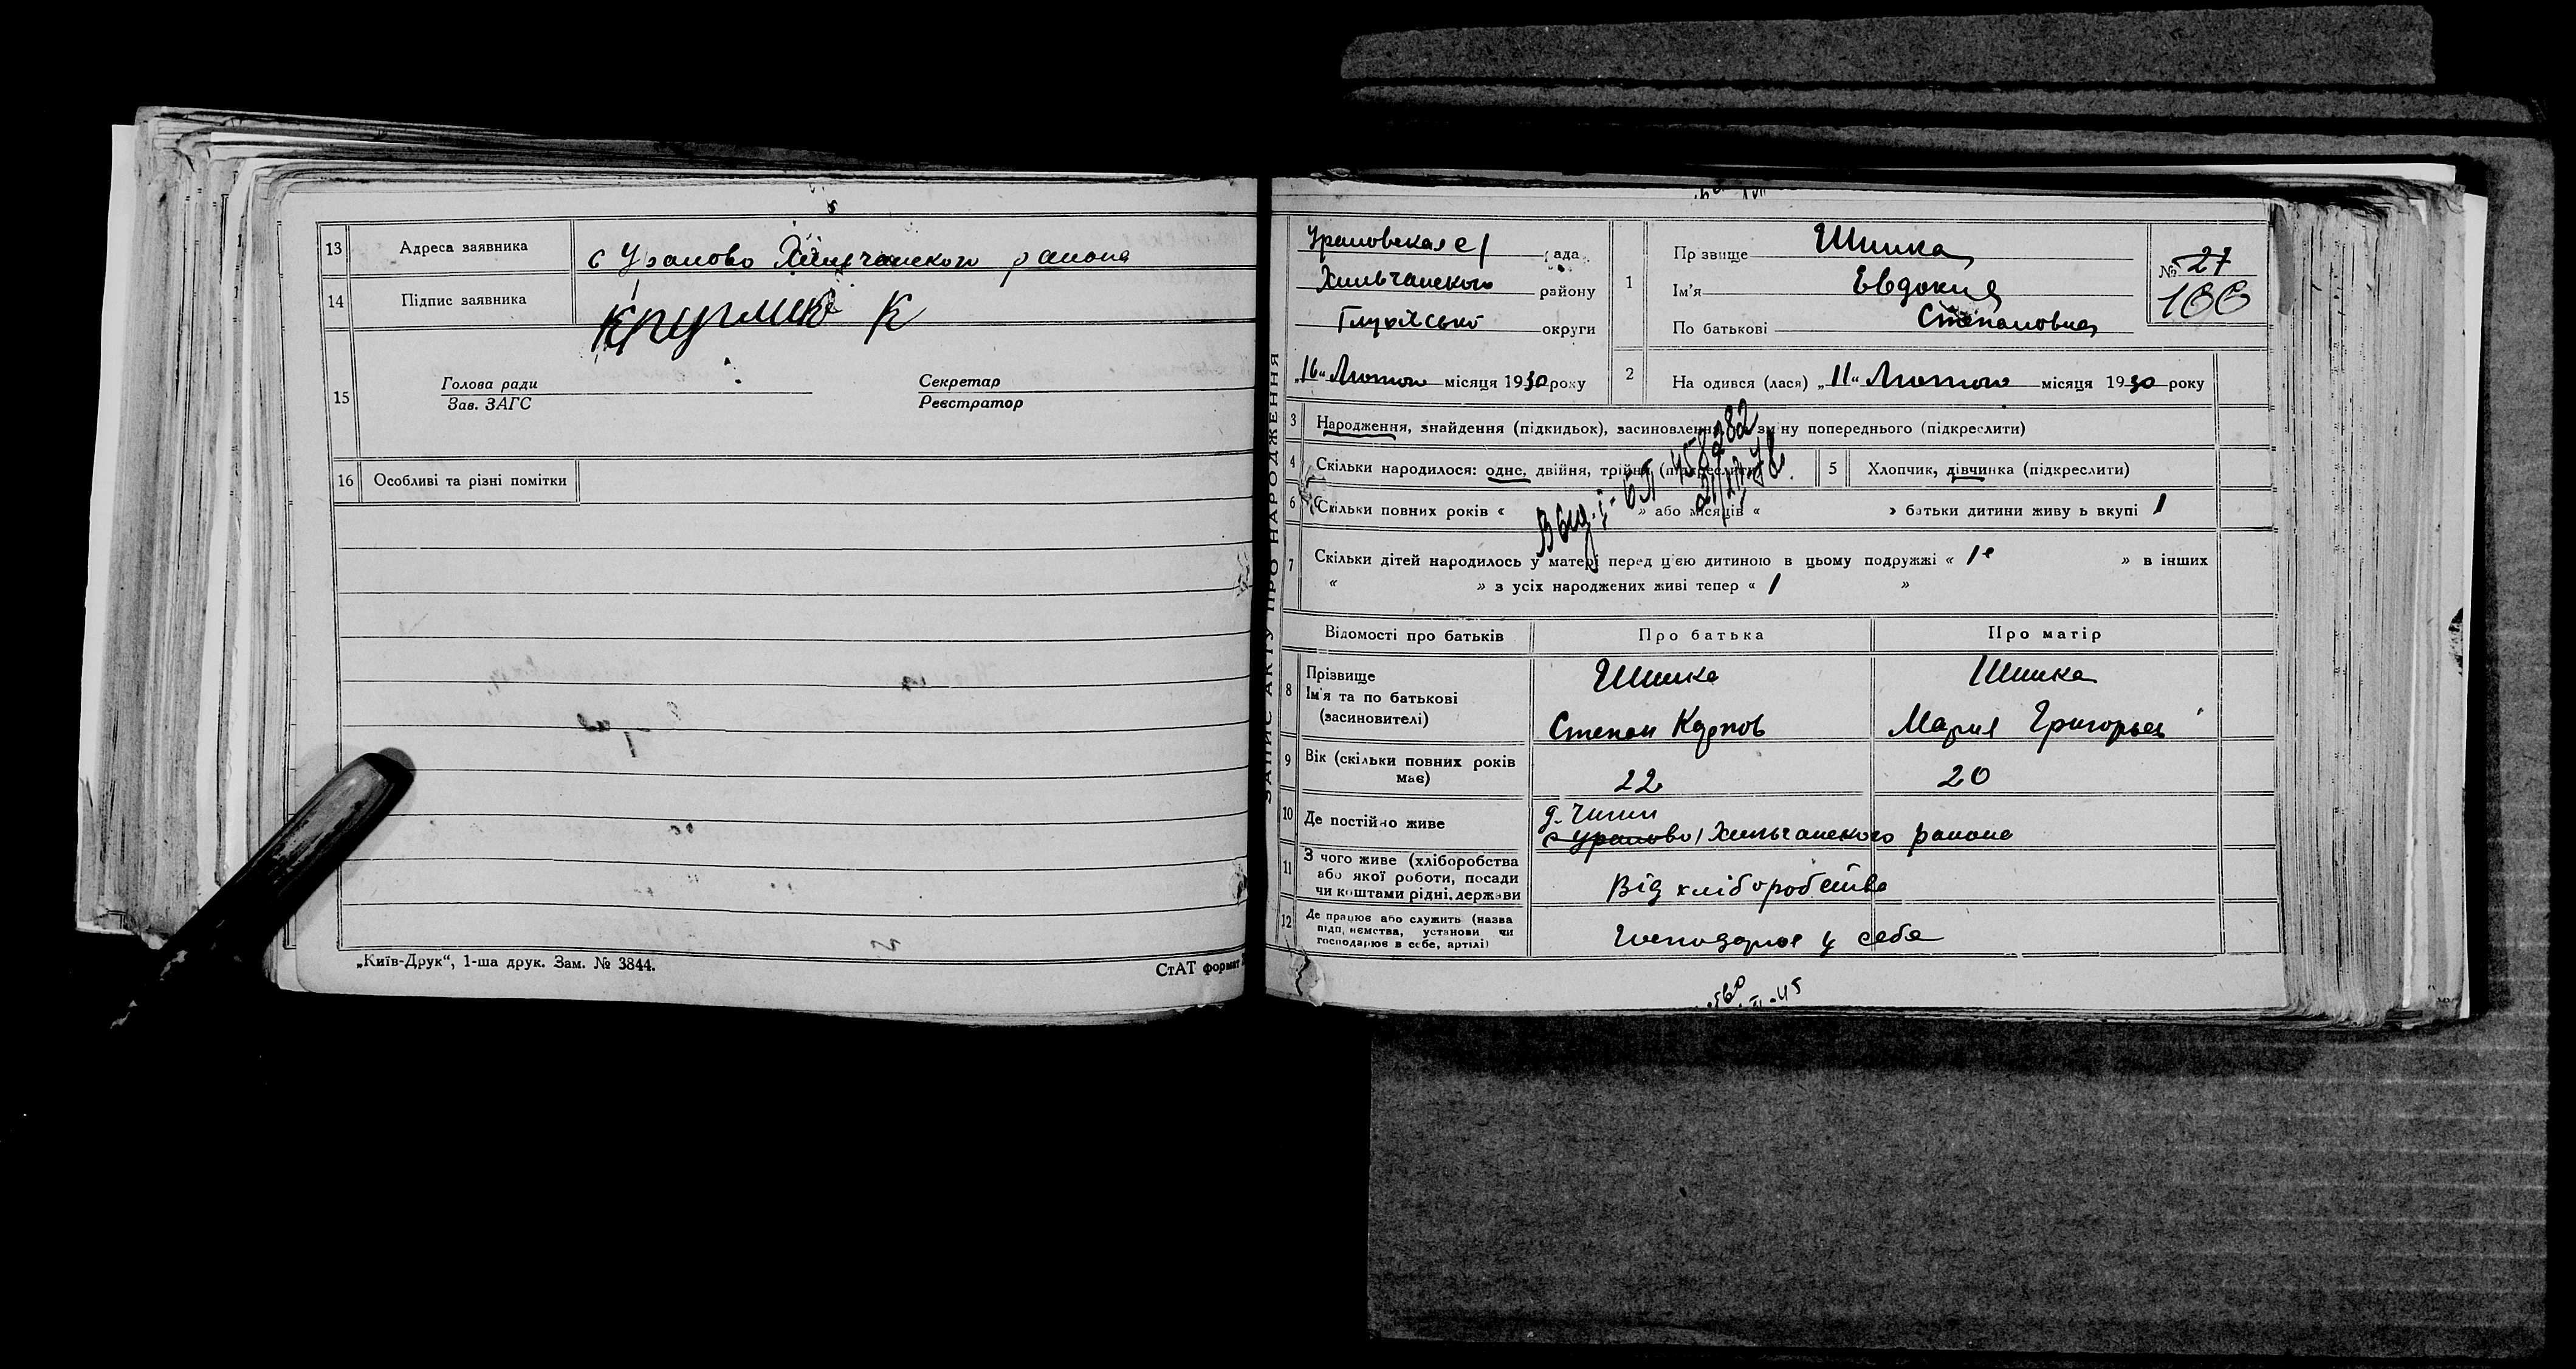 13 Адреса заявника с Ураново Хильчанского района
14 Підпис заявника
К
15 Голова ради Секретар
Зав. ЗАГС Реєстратор
16 Особливі та різні помітки
„Київ-Друк“, 1-ша друк. Зам. № 3844.
СтАТ формат
ЗАПИС АКТУ ПРО НАРОДЖЕННЯ
Урановская с/ рада
Хильчанского району
округи
„16“ Лютого місяця 1930 року
1 Прізвище Шишка
Ім'я Евдокия
По батькові Степановна
№ 27
166
2 На одився (лася) „11“ Лютого місяця 1930 року
3 Народження, знайдення (підкидьок), засиновлення, зміну попереднього (підкреслити)
4 Скільки народилося: одне, двійня, трійня (підкреслити)
5 Хлопчик, дівчинка (підкреслити)
6 Скільки повних років « » або місяців « » батьки дитини живу ь вкупі 1
7 Скільки дітей народилось у матері перед цією дитиною в цьому подружжі « 1е » в інших
« » з усіх народжених живі тепер « 1 »
Відомості про батьків Про батька Про матір
8 Прізвище Шишка Шишка
Ім'я та по батькові
(засиновителі) Степан Карпов Мария Григорьев
9 Вік (скільки повних років
має) 22 20
10 Де постійно живе
с Ураново Хильчанского района
11 З чого живе (хліборобства
або якої роботи, посади
чи коштами рідні, держави Від хліборобства
12 Де працює або служить (назва
підприємства, установи чи
господарює в себе, артілі) Господарює у себе